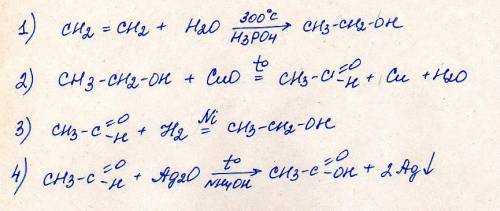 1) CH2 = CH2 + H2O 300°C H3PO4 → CH3-CH2-OH
2) CH3-CH2-OH + CuO t° = CH3-C=O-H + Cu + H2O
3) CH3-C=O-H + H2 Ni = CH3-CH2-OH
4) CH3-C=O-H + Ag2O t° NH4OH → CH3-C=O-OH + 2Ag↓